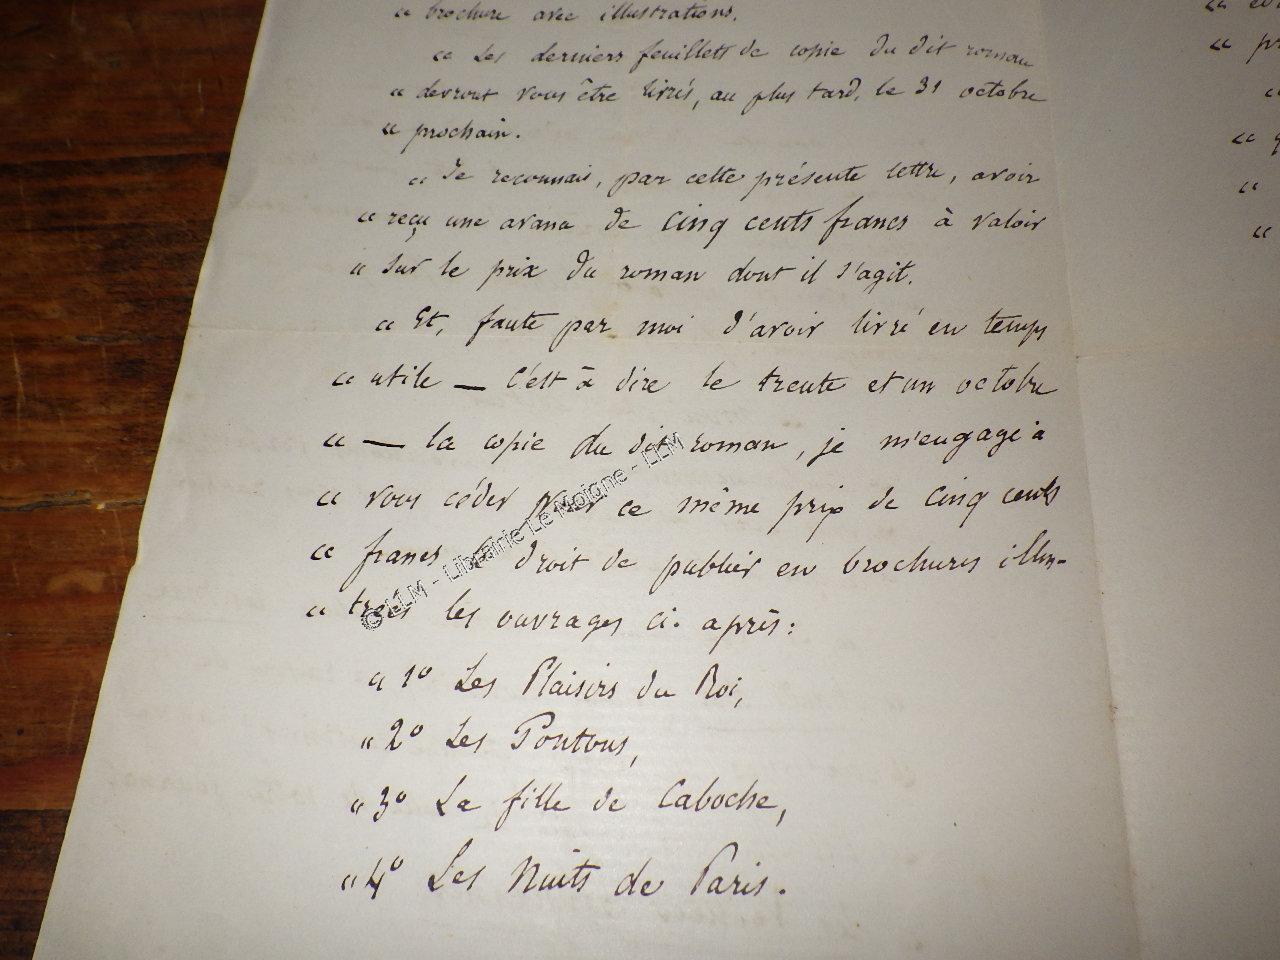 « brochure avec illustrations.
« Les derniers feuillets de copie du dit roman
« devront vous être livrés, au plus tard, le 31 octobre
« prochain.
« Je reconnais, par cette présente lettre, avoir
« reçu une avance de cinq cents francs à valoir
« sur le prix du roman dont il s'agit.
« Et, faute par moi d'avoir livré en temps
« utile — c'est à dire le trente et un octobre
« — la copie du dit roman, je m'engage à
« vous céder pour ce même prix de cinq cents
« francs le droit de publier en brochures illus-
« trées les ouvrages ci-après :
« 1º Les Plaisirs du Roi,
« 2º Les Pontons,
« 3º La fille de Caboche,
« 4º Les Nuits de Paris.
© LLM - Librairie Le Moigne - LLM